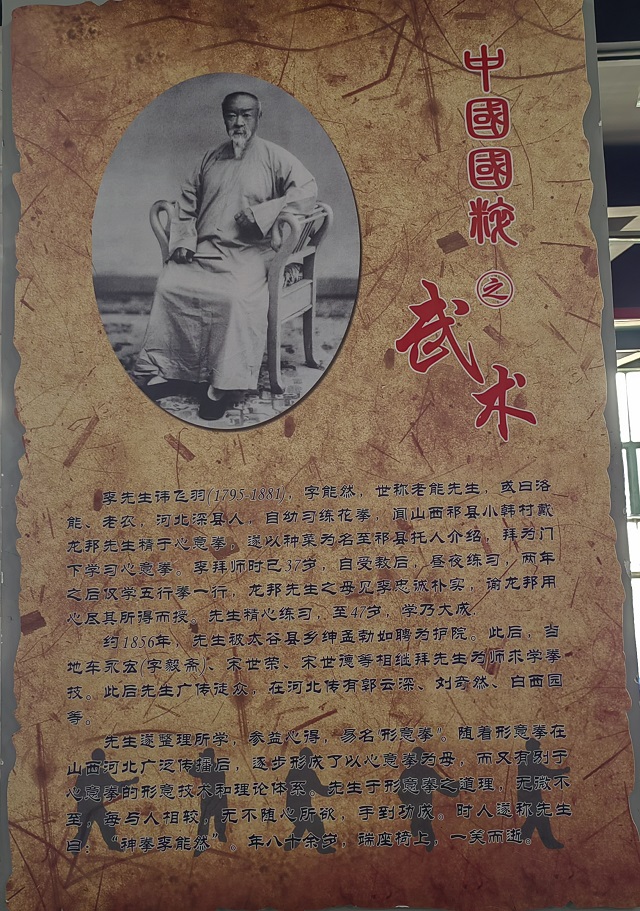 中國國粹
之
武术
李先生讳飞羽(1795-1881)，字能然，世称老能先生，或曰洛
能、老农，河北深县人，自幼习练花拳，闻山西祁县小韩村戴
龙邦先生精于心意拳，遂以种菜为名至祁县托人介绍，拜为门
下学习心意拳。李拜师时已37岁，自受教后，昼夜练习，两年
之后仅学五行拳一行，龙邦先生之母见李忠诚朴实，谕龙邦用
心尽其所得而授。先生精心练习，至47岁，学乃大成。
约1856年，先生被太谷县乡绅孟勃如聘为护院。此后，当
地车永宏(字毅斋)、宋世荣、宋世德等相继拜先生为师求学拳
技。此后先生广传徒众，在河北传有郭云深、刘奇然、白西园
等。
先生遂整理所学，参益心得，易名"形意拳"。随着形意拳在
山西河北广泛传播后，逐步形成了以心意拳为母，而又有别于
心意拳的形意技术和理论体系。先生于形意拳之道理，无微不
至，每与人相较，无不随心所欲，手到功成。时人遂称先生
曰："神拳李能然"。年八十余岁，端座椅上，一笑而逝。